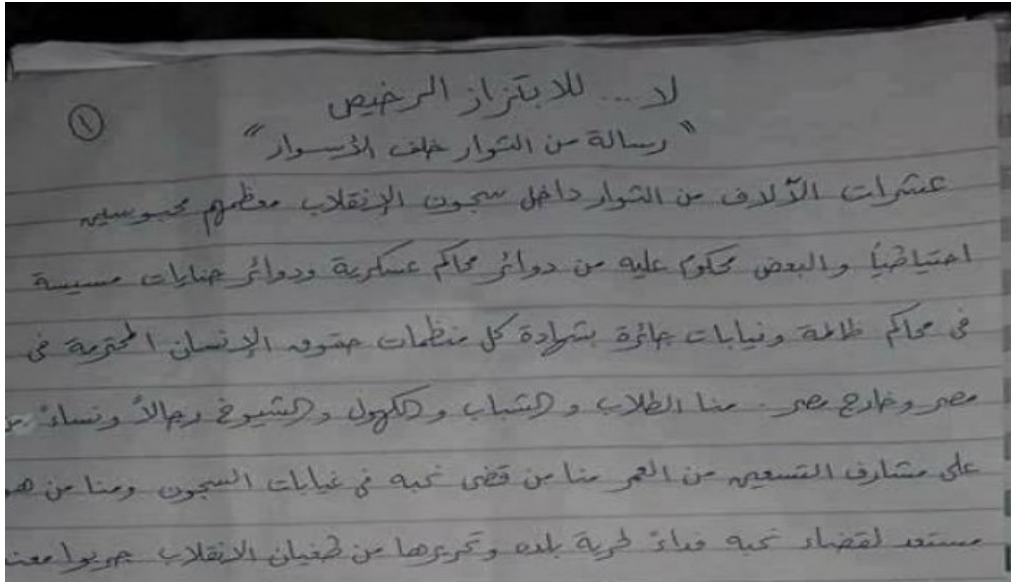 لا ... للابتزاز الرخيص
١
"رسالة من الثوار خلف الأسوار"
عشرات الآلاف من الثوار داخل سجون الإنقلاب معظمهم محبوسين
احتياطياً والبعض محكوم عليه من دوائر محاكم عسكرية ودوائر جنايات مسيسة
فى محاكم ظالمة ونيابات جائرة بشهادة كل منظمات حقوق الإنسان المحترمة فى
مصر وخارج مصر . منا الطلاب والشباب والكهول والشيوخ رجالاً ونساءً
على مشارف التسعين من العمر منا من قضى نحبه فى غيابات السجون ومنا من هو
مستعد لقضاء نحبه فداءً لحرية بلده وتحريرها من طغيان الانقلاب جربوا معنا